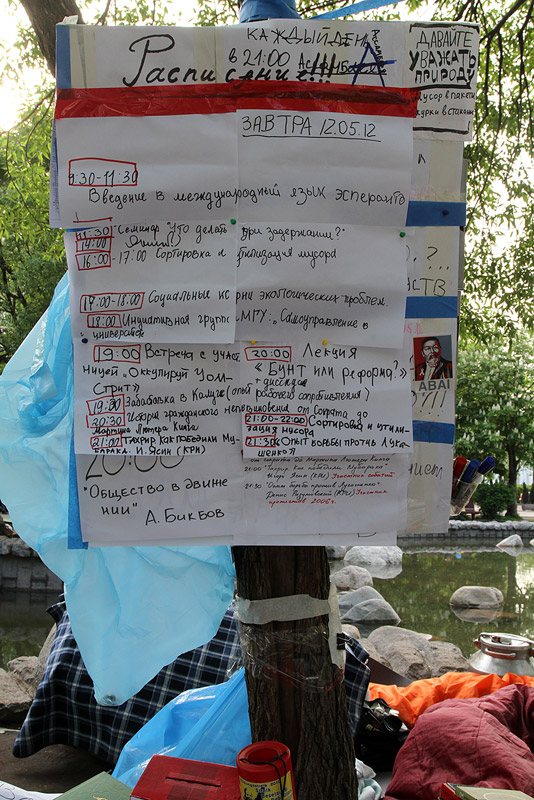 КАЖДЫЙ ДЕНЬ
в 21:00
Расписание...
ДАВАЙТЕ
УВАЖАТЬ
ПРИРОДУ
мусор в пакеты
окурки в стаканы
ЗАВТРА 12.05.12
9:30-11:30
Введение в международный язык эсперанто
11:30 Семинар "Что делать при задержании?"
14:00
16:00 -17:00 Сортировка и утилизация мусора
17:00-18:00 Социальные корни экологических проблем.
18:00 Инициативная группа МГУ: „Самоуправление в
университе
19:00 Встреча с участ
ницей „Оккупируй Уолл
Стрит"
20:00 Лекция
«БУНТ или реформа?»
+ дискуссия
19:30 Забастовка в Калуге (опыт рабочего сопротивления)
20:30 История гражданского неповиновения от Сократа до
Мартина Лютера Кинга
21:00 ТАХРИР КАК ПОБЕДИЛИ МУ-
БАРАКА. И. ЯСИН (КРИ)
21:00-22:00 Сортировка и утили-
зация мусора
21:30 ОПЫТ БОРЬБЫ ПРОТИВ ЛУКА-
ШЕНКО
20:00
"Общество в движе
нии"
А. Бикбов
от Сократа до Мартина Лютера Кинга
21:00 "Тахрир. Как победили Мубарака"
Ясин (КРИ) Участник событий
21:30 "Опыт борьбы против Лукашенко"
(КРИ) Участник
протестов 2006г.
ABAI